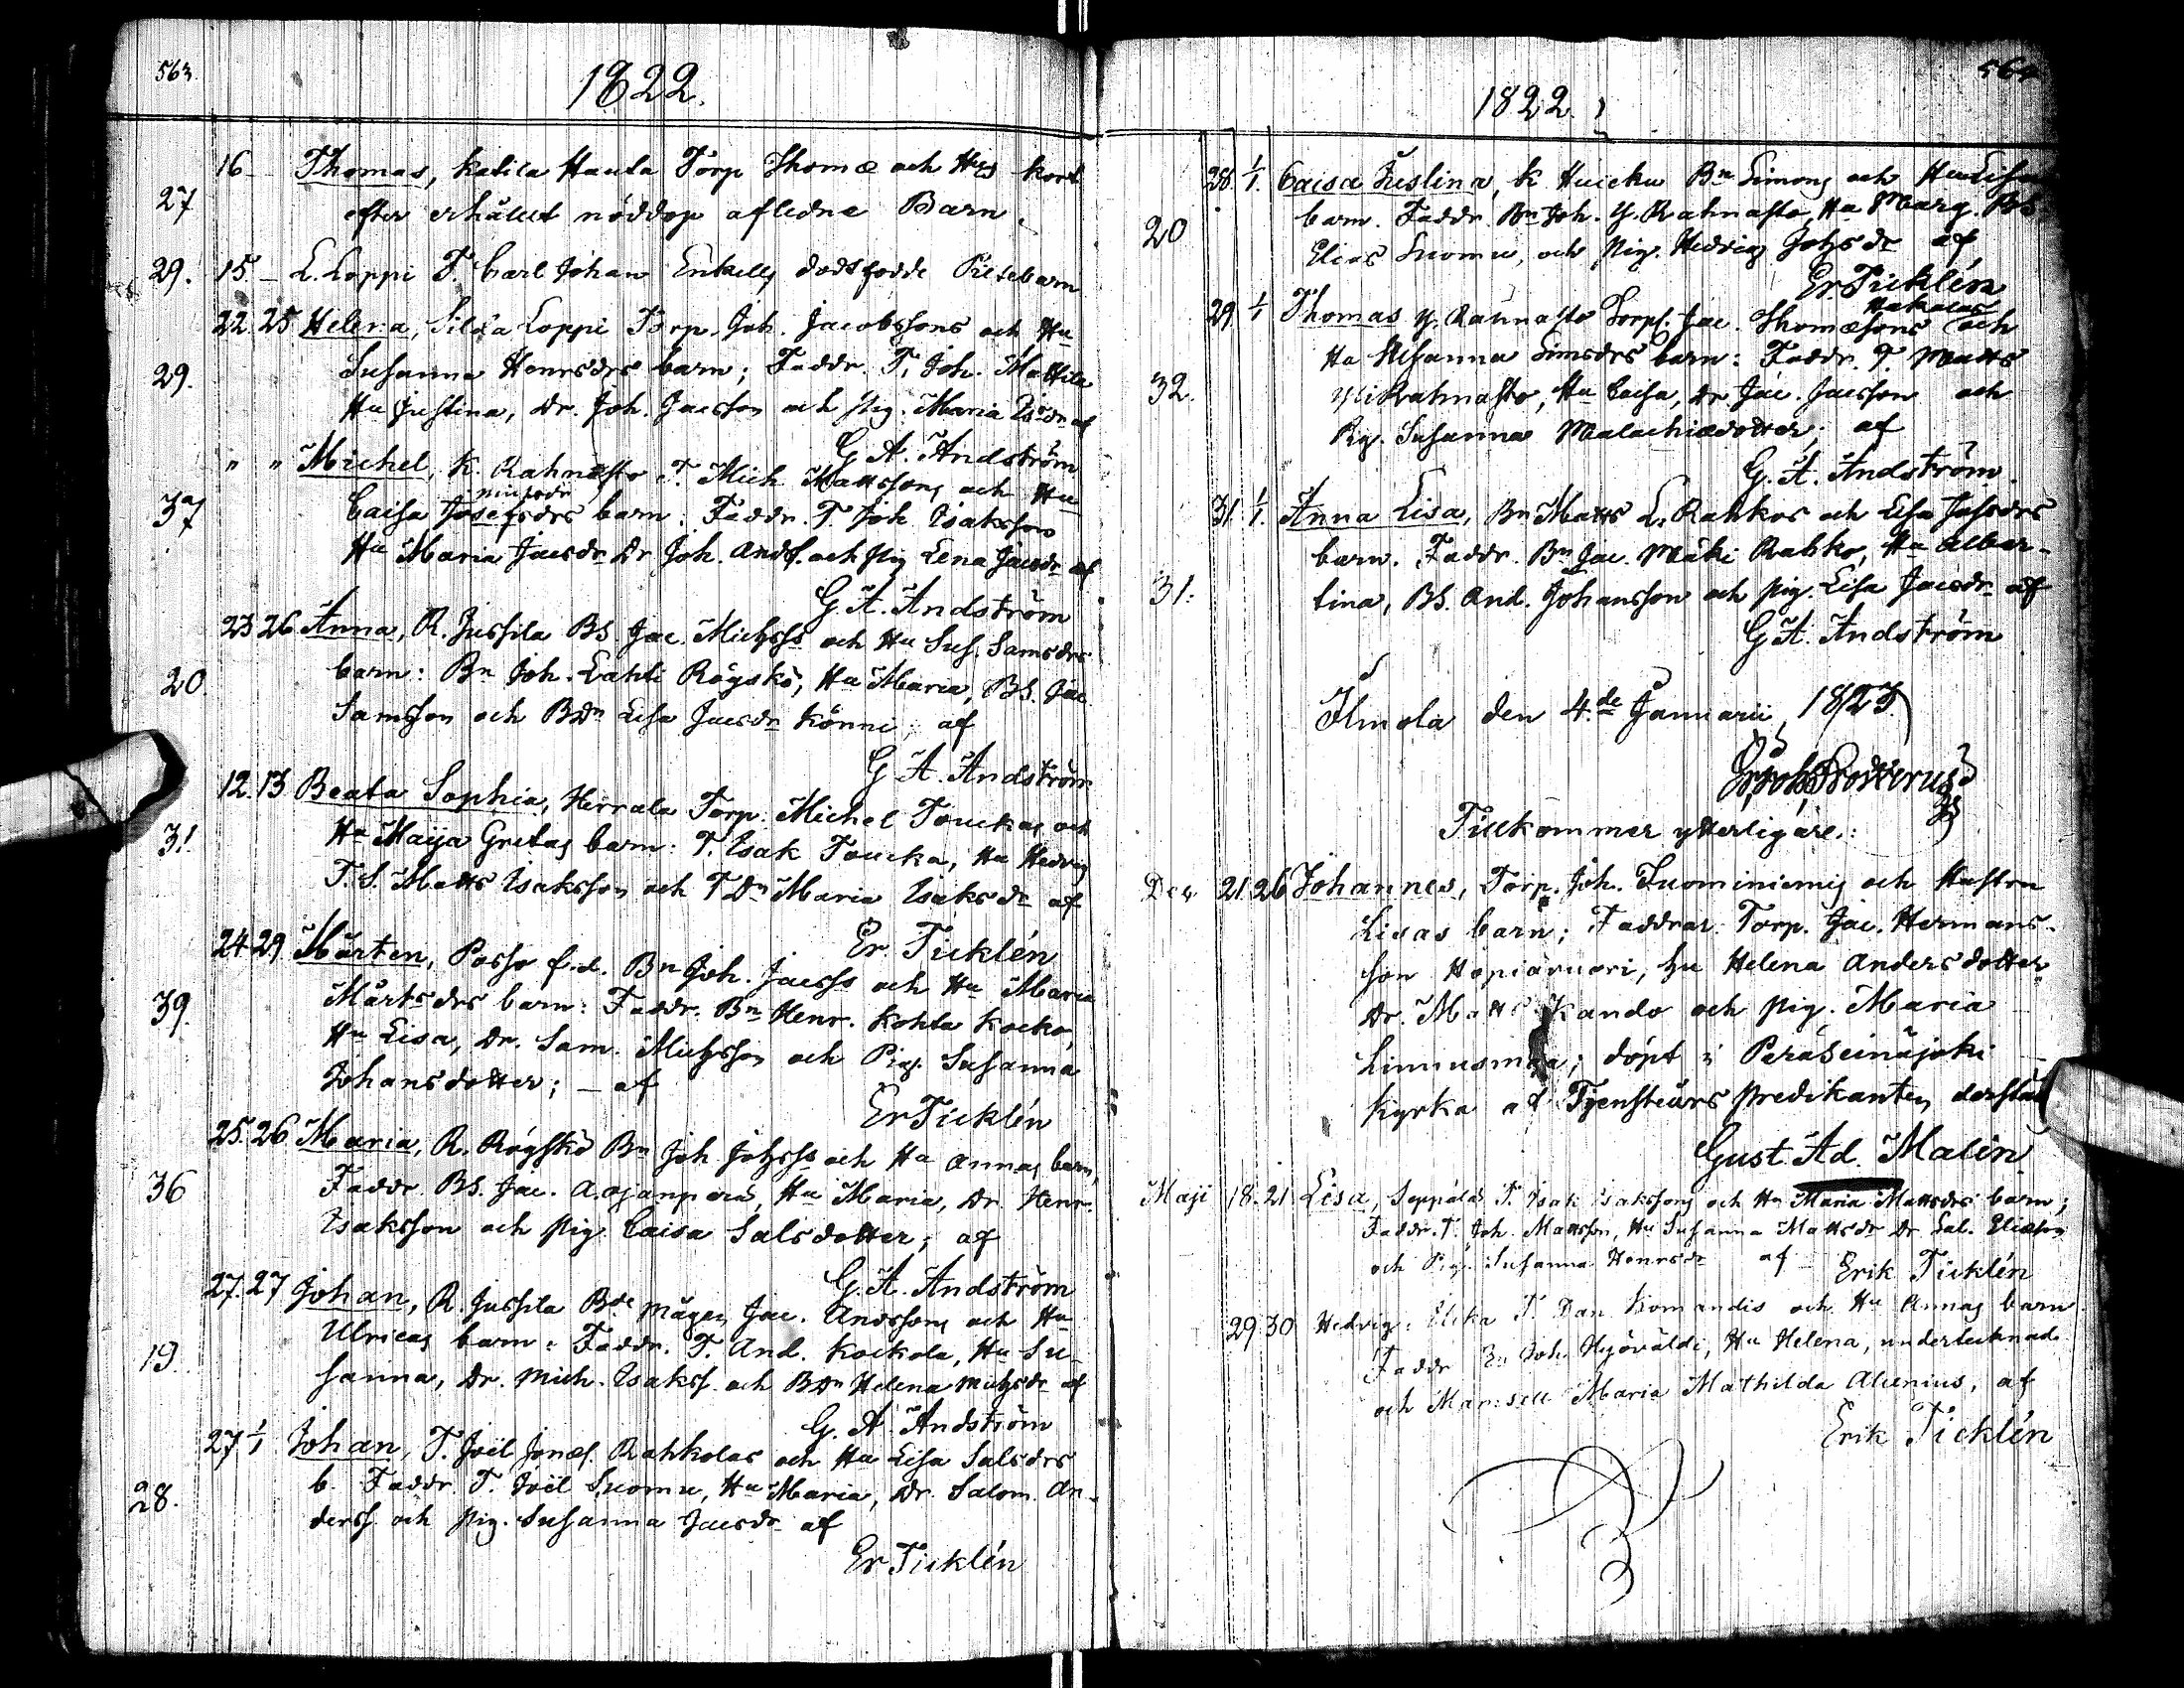 563.
1822.
16 Thomas, Katila Hauta Torp Thomæ och Hus kort
27 efter erhållet nöddop aflidne Barn.
29. 15. L. Loppi T. Carl Johan Enkells dödsfödde Piltebarn
22. 25 Helena, Loppi Torp. Joh. Jacobssons och Hu
29. Susanna Henrsdrs barn; Faddr. T. Joh. Mattila
Hu Justina, Dr. Joh. Jacsson och pig. Maria af
G. A. Andström
" " Michel, K. Rahnasto T. Mich. Mattssons och Hu
37 Caisa Josefsdrs barn: Faddr. T. Joh. Isaksson
Hu Maria Jacsdr Dr Joh. Andss. och pig Lena Jacsdr af
G. A. Andström
23 26 Anna, R. Jussila BS. Jac. Michss och Hu Sus. Samsdrs
20. barn: Bn Joh. Lahti Rögskö, Hu Maria, BS. Jac.
Samsson och BDn Lisa Jacsdr Könni; af
G A. Andström
12. 13 Beata Sophia, Herrala Torp. Michel Touckas och
31. Hu Maija Gretas barn: T. Isak Toucka, Hu Hedvig
T. S. Matts Isaksson och TDn Maria Isaksdr af
Er. Ticklén
24 29 Mårten, Posso f.d. Bn Joh. Jacss och Hu Maria
39. Mårtsdrs barn: Faddr. Bn Henr. Kohta Kocko,
Hu Lisa, Dr. Sam. Michsson och Pig. Susanna
Johansdotter; – af
Er Ticklén
25. 26 Maria, R. Rögskö Bn Joh. Johss och Hu Annas barn,
36 Faddr. BS. Jac. Ojanperä, Hu Maria, Dr. Henr.
Isaksson och pig. Caisa Salsdotter; af
G. A. Andström
27. 27 Johan, R. Jussila Bde mågen Jac. Andssons och Hu
19. Ulricas barn: Faddr. T. And. Kockola, Hu Su-
sanna, Dr. Mich. Isakss. och BDn Helena Michsdr af
G. A. Andström
27 1/1 Johan, T. Joël Jonæs. Rahkolas och Hu Lisa Salsdrs
28. b. Faddr. T. Joël Suomu, Hu Maria, Dr. Salom. An-
derss. och pig. Susanna Jacsdr af
Er Ticklén
564
1822.
28. 1/1 Caisa Justina, K Huicku Bn Simons och Hu Lisas
20 barn. Faddr. Bn Joh. Y. Rahnasto, Hu Marg. BS
Elias Suomu, och pig. Hedvig Johsdr af
Er. Ticklén
Rahkolas
29. 1/1 Thomas Y. Rahnasto Torp. Jac. Thomæsons och
Hu Susanna Simsdrs barn: Faddr. T. Matts
32. Yli Rahnasto, Hu Caisa, Dr Jac. Jacsson och
Pig. Susanna Malachiædotter; af
G. A. Andström.
31. 1/1. Anna Lisa, Bn Matts L. Rahkos och Lisa Jafsdrs
barn. Faddr. Bn Jac. Mäki Rahko, Hu Alber-
31. tina, BS. And. Johansson och pig. Lisa Jacsdr af
G A. Andström
Ilmola den 4.de Januarii, 1823.
Tillkommer ytterligare:
Dec. 21 26 Johannes, Torp. Joh. Tuominiemis och Hustru
Lisas barn; Faddrar. Torp. Jac. Hermans-
son Hopiavuori, Hu Helena Andersdotter
Dr. Matts Kando och pig. Maria
döpt i Peräseinäjoki
Kyrka af Tjensteårs predikanten derstäd
Gust. Ad. Malin
Maji 18. 21 Lisa, Seppälä T. Isak Isakssons och Hu Maria Mattsdrs barn;
Faddr. T. Joh. Mattsson, Hu Susanna Mattsdr Dr. Sal. Eliæson
och Pig. Susanna Henrsdr af Erik Ticklén
29. 30 Hedvig, T. Dan. Komandis och Hu Annas barn.
Faddr Bn Joh. Hyöväldi, Hu Helena, undertecknad
och Mamsell Maria Mathilda Alcenius, af
Erik Ticklén